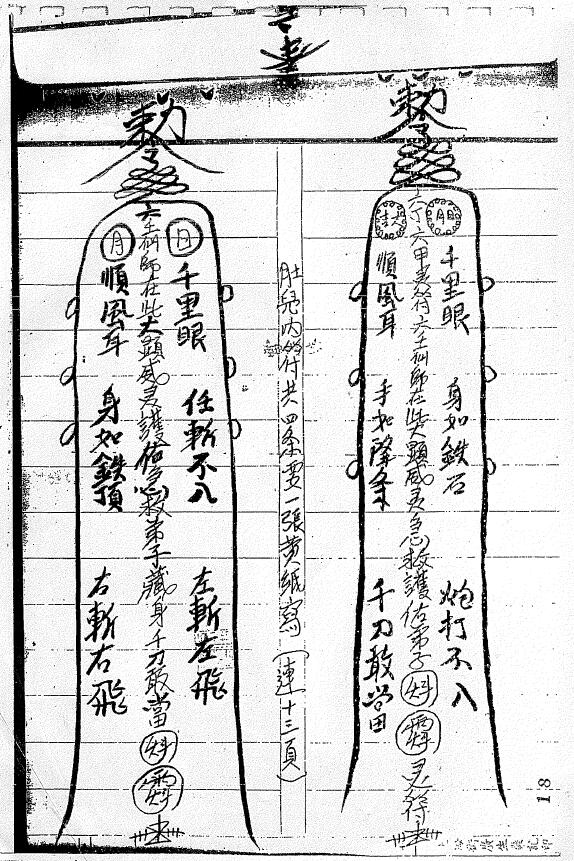 勅令
六丁六甲灵符六壬仙師在此大顯威灵急救護佑弟子
灵符
日月
千里眼 身如鉄石 炮打不入
順風耳 手如降条 千刀敢當
肚兒内符共四条要一張黄紙寫(連十三頁)
勅令
六壬仙師在此大顯威灵護佑急救弟子藏身千刀敢當
日
千里眼 任斬不入 左斬左飛
月
順風耳 身如鉄頂 右斬右飛
18